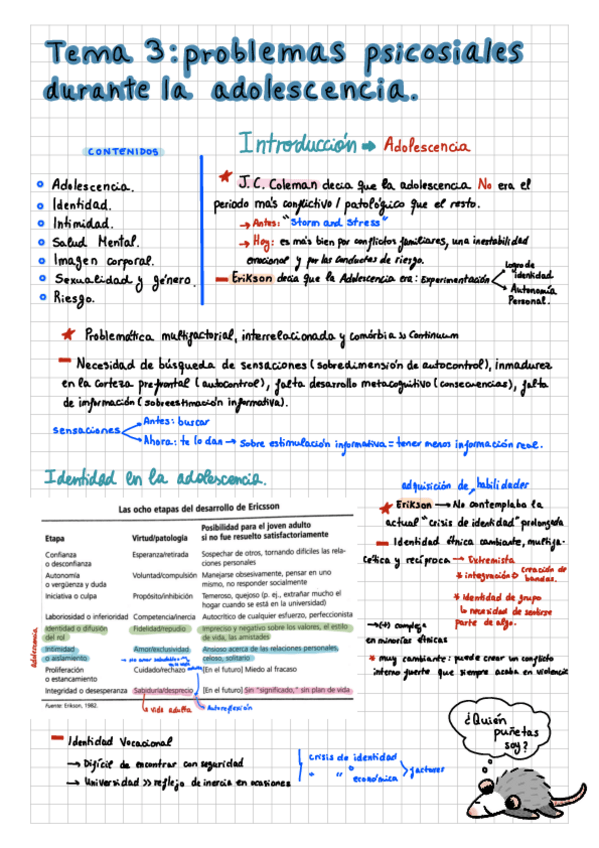 Tema 3: problemas psicosiales
durante la adolescencia.
CONTENIDOS
Adolescencia.
Identidad.
Intimidad.
Salud Mental.
Imagen corporal.
Sexualidad y género.
Riesgo.
Introducción → Adolescencia
J.C. Coleman decia que la adolescencia No era el
periodo más conflictivo / patológico que el resto.
→ Antes: "Storm and Stress"
→ Hoy: es más bien por conflictos familiares, una inestabilidad
emocional y por las conductas de riesgo.
Erikson decia que la Adolescencia era: Experimentación
Logro de identidad.
Autonomía Personal.
Problemática multifactorial, interrelacionada y comórbia >> Continuum
Necesidad de búsqueda de sensaciones (sobredimensión de autocontrol), inmadurez
en la corteza prefrontal (autocontrol), falta desarrollo metacognitivo (consecuencias), falta
de información (sobreestimación informativa).
sensaciones
Antes: buscar
Ahora: te lo dan → Sobre estimulación informativa = tener menos información real.
Identidad en la adolescencia.
Las ocho etapas del desarrollo de Ericsson
Etapa Virtud/patología Posibilidad para el joven adulto si no fue resuelto satisfactoriamente
Confianza o desconfianza Esperanza/retirada Sospechar de otros, tornando difíciles las relaciones personales
Autonomía o vergüenza y duda Voluntad/compulsión Manejarse obsesivamente, pensar en uno mismo, no responder socialmente
Iniciativa o culpa Propósito/inhibición Temeroso, quejoso (p. ej., extrañar mucho el hogar cuando se está en la universidad)
Laboriosidad o inferioridad Competencia/inercia Autocrítico de cualquier esfuerzo, perfeccionista
Identidad o difusión del rol Fidelidad/repudio Impreciso y negativo sobre los valores, el estilo de vida, las amistades
Intimidad o aislamiento Amor/exclusividad Ansioso acerca de las relaciones personales, celoso, solitario
Proliferación o estancamiento Cuidado/rechazo [En el futuro] Miedo al fracaso
Integridad o desesperanza Sabiduría/desprecio [En el futuro] Sin "significado," sin plan de vida
Fuente: Erikson, 1982.
Adolescencia
↳ Vida adulta
Autoreflexión
adquisición de habilidades
Erikson → No contemplaba la
actual "crisis de identidad" prolongada
Identidad étnica cambiante, multifa-
cética y recíproca → Extremista
* integración → creación de bandas.
* Identidad de grupo
↳ necesidad de sentirse
parte de algo.
→ (+) compleja
en minorías étnicas
* muy cambiante: puede crear un conflicto
interno fuerte que siempre acaba en violencia
Identidad Vocacional
→ Difícil de encontrar con seguridad
→ Universidad >> reflejo de inercia en ocasiones
crisis de identidad
" " económica
factores
¿Quién
puñetas
soy?